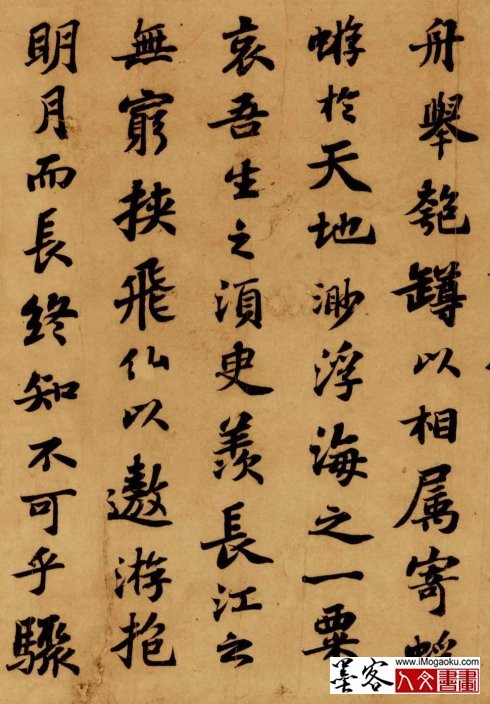 舟舉匏罇以相属寄蜉
蝣於天地渺浮海之一粟
哀吾生之須臾羨長江之
無窮挟飛仙以遨游抱
明月而長終知不可乎驟
墨客 www.iMogaoku.com
人文書畫